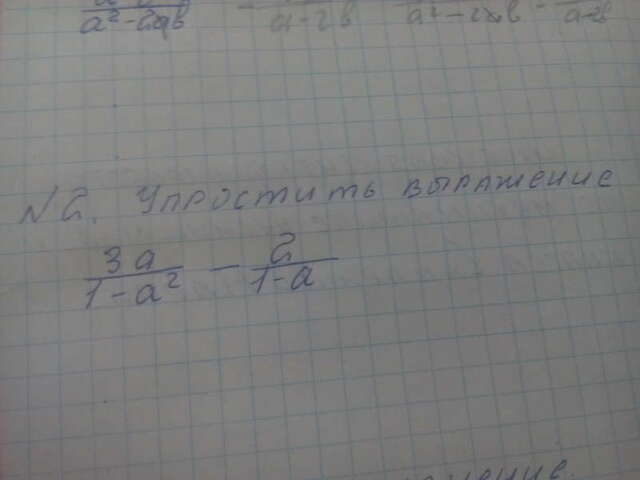 a² - 2ab a - 2b a² - 2ab a - 2b
№ 2. Упростить выражение
3a/(1-a²) - 2/(1-a)